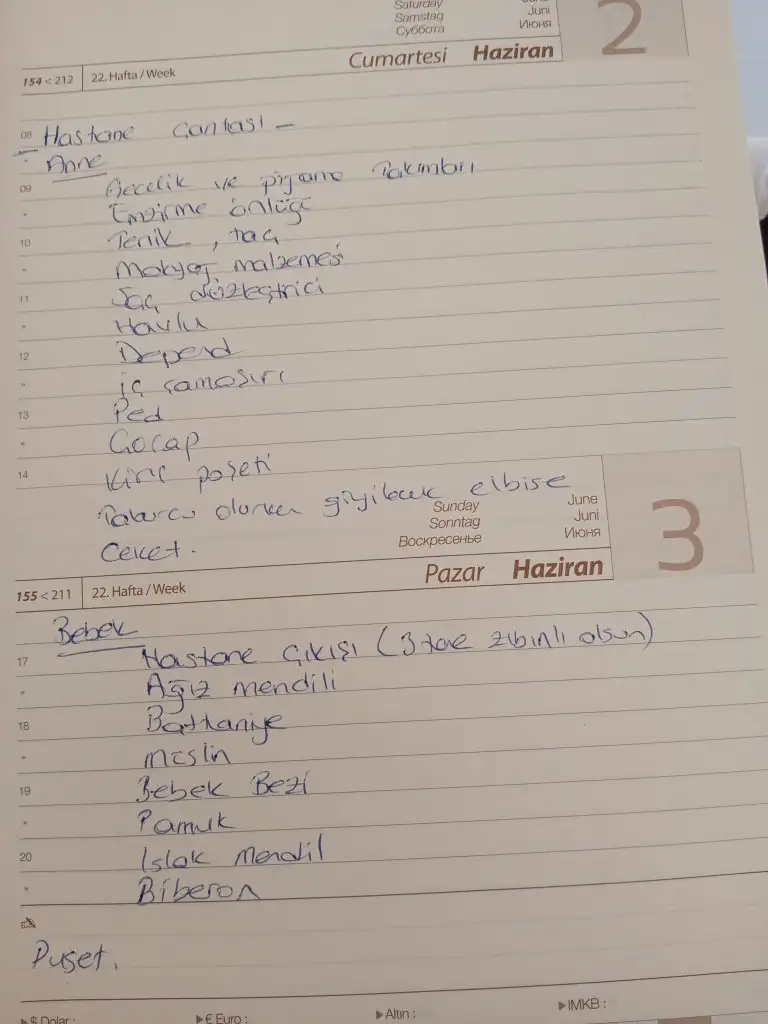 Saturday
Samstag
Суббота
Juni
Июня
2
Cumartesi Haziran
154 < 212 22. Hafta / Week
08 Hastane Çantası -
Anne
09 Gecelik ve pijama Takımları
Emzirme önlüğü
10 Terlik, taç
Makyaj malzemesi
11 Saç düzleştirici
Havlu
12 Depend
iç çamaşırı
13 Ped
Çorap
14 Kirli poşeti
Taburcu olurken giyilecek elbise
Ceket.
Sunday
Sonntag
Воскресенье
June
Juni
Июня
3
Pazar Haziran
155 < 211 22. Hafta / Week
Bebek
17 Hastane Çıkışı (3 tane zıbınlı olsun)
Ağız mendili
18 Battaniye
müslin
19 Bebek Bezi
Pamuk
20 Islak Mendil
Biberon
Puset.
$ Dolar :
€ Euro :
Altın :
IMKB :